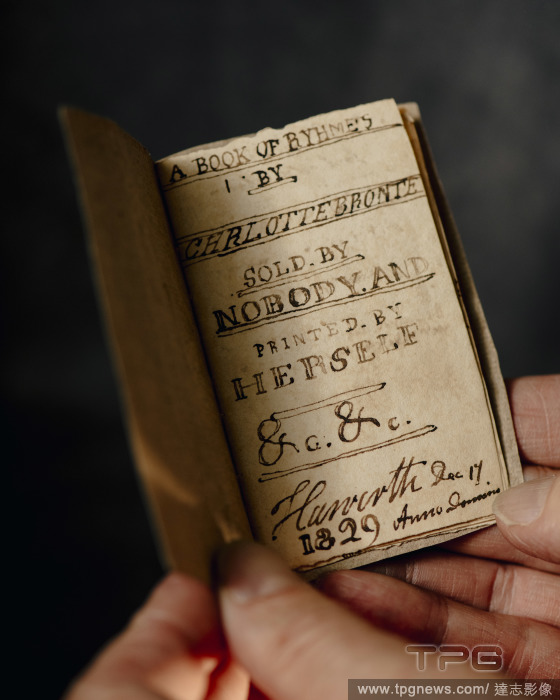 A BOOK OF RYHMES
BY
CHRLOTTE BRONTE
SOLD. BY
NOBODY. AND
PRINTED. BY
HERSELF
&c. &c.
Haworth Dec 17
1829 Anno Domino
TPG
www.tpgnews.com / 達志影像